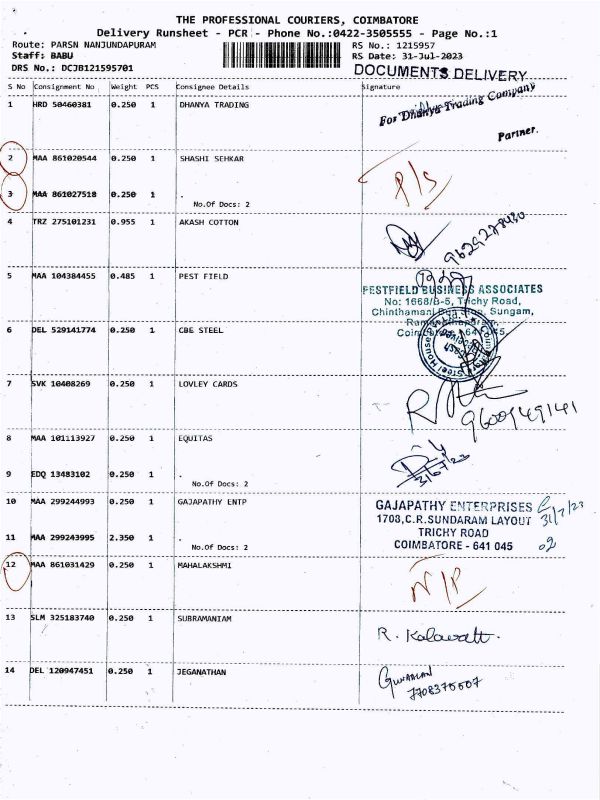 THE PROFESSIONAL COURIERS, COIMBATORE
Delivery Runsheet - PCR - Phone No.:0422-3505555 - Page No.:1
Route: PARSN NANJUNDAPURAM RS No.: 1215957
Staff: BABU RS Date: 31-Jul-2023
DRS No.: DCJB121595701 DOCUMENTS DELIVERY
S No Consignment No Weight PCS Consignee Details Signature
1 HRD 50460381 0.250 1 DHANYA TRADING For Dhanya Trading Company
Partner.
2 MAA 861020544 0.250 1 SHASHI SEHKAR P/S
3 MAA 861027518 0.250 1 .
No.Of Docs: 2
4 TRZ 275101231 0.955 1 AKASH COTTON
5 MAA 104384455 0.485 1 PEST FIELD
PESTFIELD BUSINESS ASSOCIATES
No: 1668/B-5, Trichy Road,
Sungam,
6 DEL 529141774 0.250 1 CBE STEEL
7 SVK 10408269 0.250 1 LOVLEY CARDS
8 MAA 101113927 0.250 1 EQUITAS
9 EDQ 13483102 0.250 1 .
No.Of Docs: 2
10 MAA 299244993 0.250 1 GAJAPATHY ENTP GAJAPATHY ENTERPRISES
31/7/23
1708,C.R.SUNDARAM LAYOUT
TRICHY ROAD
11 MAA 299243995 2.350 1 .
COIMBATORE - 641 045 02
No.Of Docs: 2
12 MAA 861031429 0.250 1 MAHALAKSHMI N/P
13 SLM 325183740 0.250 1 SUBRAMANIAM
14 DEL 120947451 0.250 1 JEGANATHAN